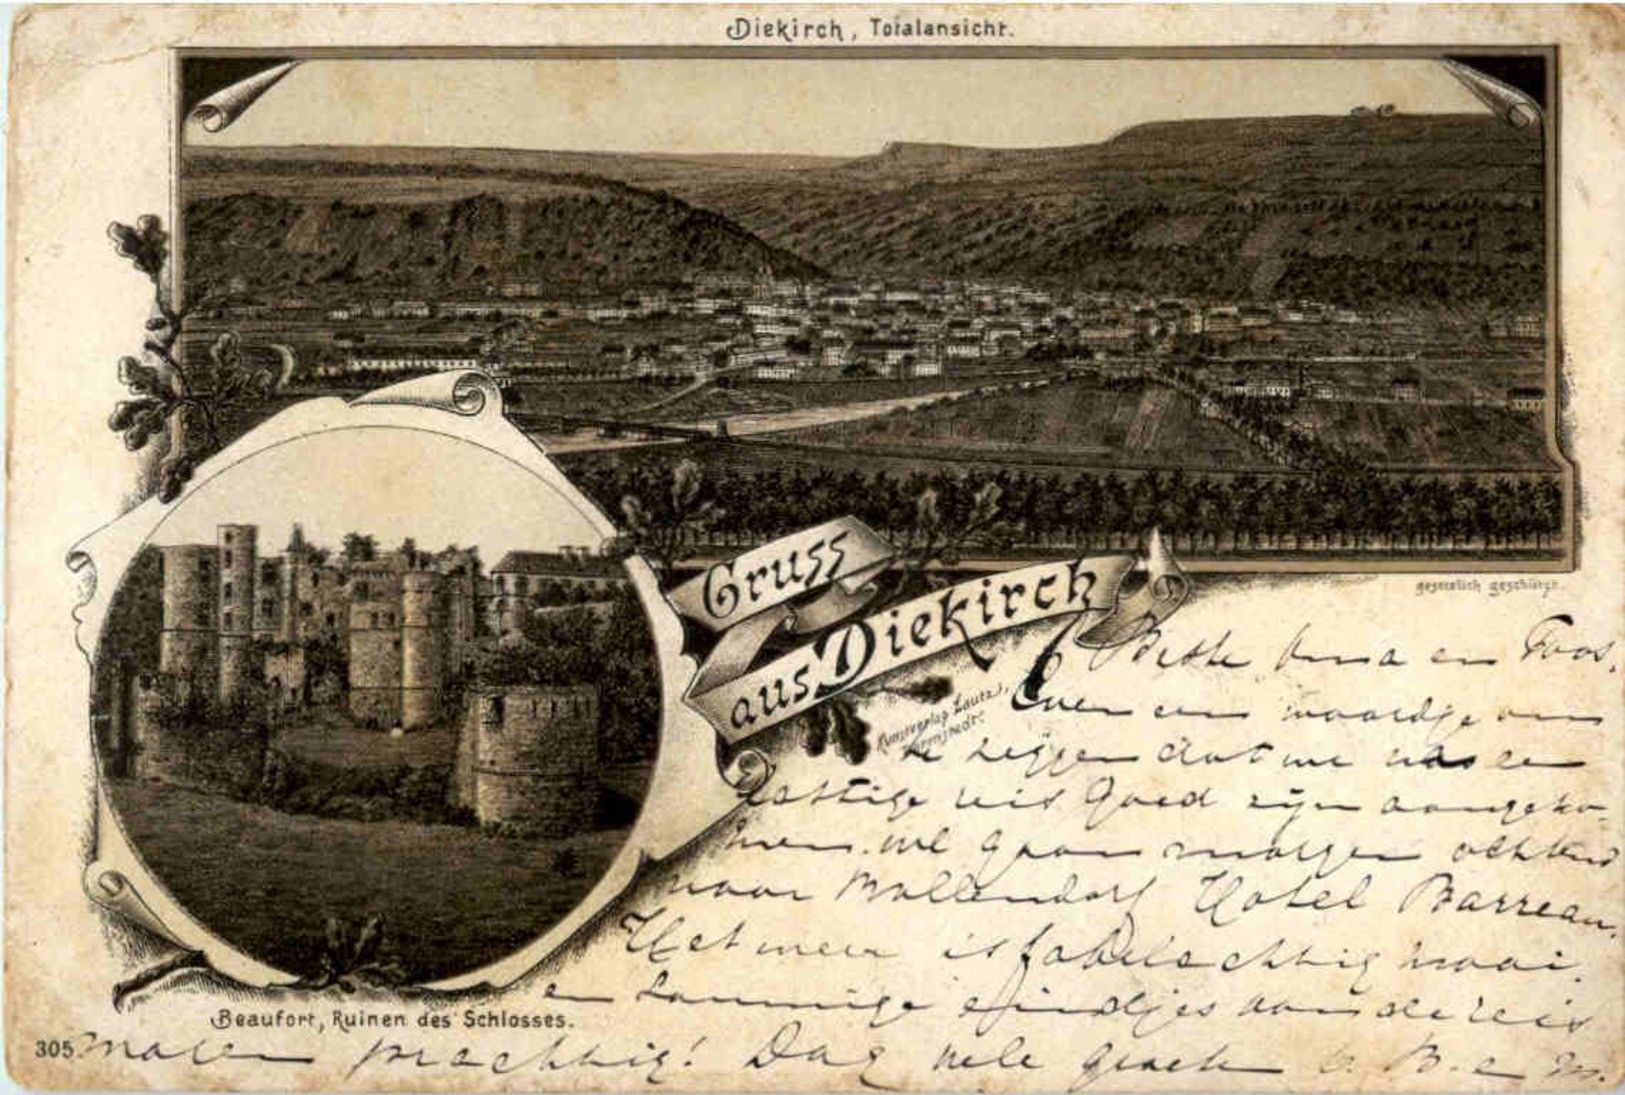 Diekirch, Totalansicht.
Gruss
aus Diekirch
gesetzlich geschützt.
Kunstverlag Lautz,
Beste Oma en Toos.
Even een woordje om
te zeggen dat we na een
lastige reis goed zijn aangeko-
men. we gaan morgen ochtend
naar Mollendorf Hotel Barreau.
Het weer is fabelachtig mooi.
en sommige eindjes van de reis
waren prachtig! Dag vele groeten v. B. e M.
Beaufort, Ruinen des Schlosses.
305